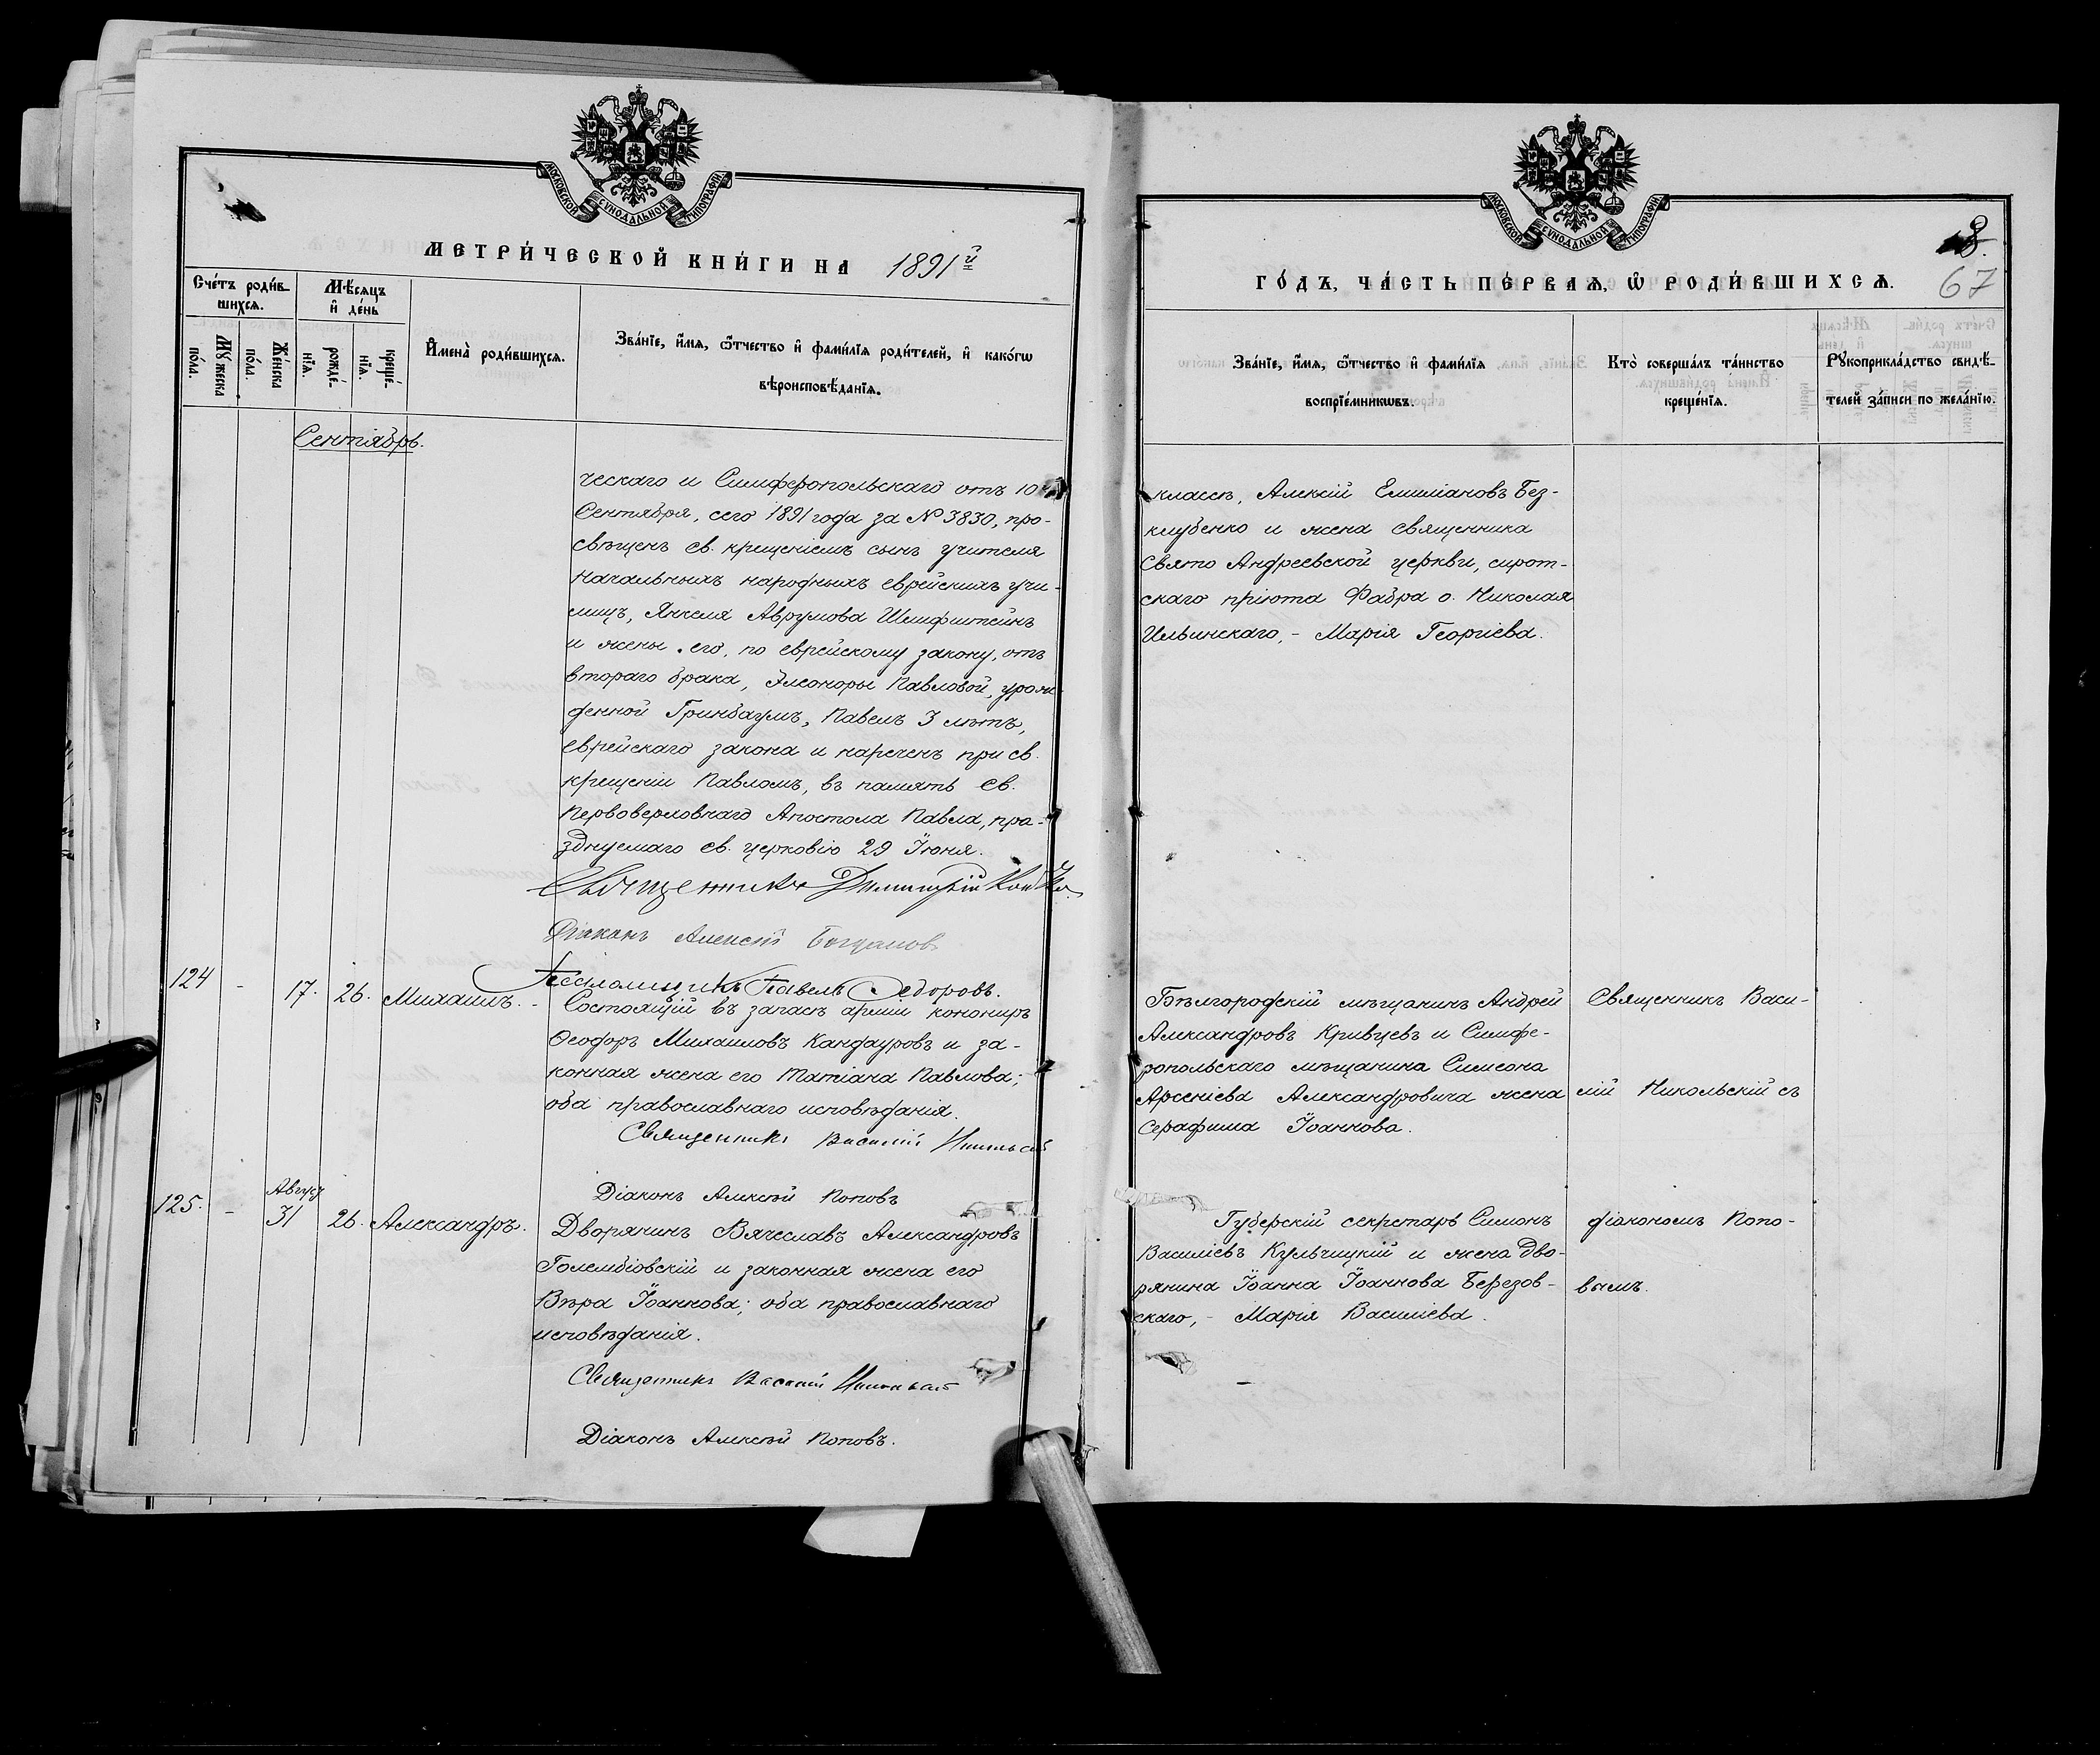 МОСКОВСКОЙ СѴНОДАЛЬНОЙ ТИПОГРАФІИ
МЕТРИ́ЧЕСКОЙ КНИ́ГИ НА 1891й
Сче́тъ роди́вшихсѧ.
Мѣ́сѧцъ и҆ де́нь
Мꙋ́жеска по́ла.
Же́нска по́ла.
рожде́нїѧ.
креще́нїѧ.
И҆мена̀ роди́вшихсѧ.
Зва́нїе, и҆́мѧ, ѻ҆́тчество и҆ фами́лїѧ роди́телей, и҆ како́гѡ
вѣроисповѣ́данїѧ.
Сентябрь.
ческаго и Симферопольскаго отъ 10
Сентября, сего 1891 года за № 3830, про-
свѣщенъ св. крещеніемъ сынъ учителя
начальныхъ народныхъ еврейскихъ учи-
лищъ, Янкеля Аврумова Шлифштейнъ
и жены его, по еврейскому закону, отъ
втораго брака, Элеоноры Павловой, урож-
денной Гринбаумъ, Павелъ 3 лѣтъ,
еврейскаго закона и нареченъ при св.
крещеніи Павломъ, въ память св.
Первоверховнаго Апостола Павла, пра-
зднуемаго св. церковію 29 Іюня.
Священникъ Димитрій
Діаконъ Алексій
Псаломщикъ Павелъ Ѳедоровъ.
124 - 17. 26. Михаилъ. - Состоящій въ запасѣ арміи конониръ
Ѳеодоръ Михаиловъ Кандауровъ и за-
конная жена его Татіана Павлова;
оба православнаго исповѣданія.
Священникъ Василій Никольскій
Діаконъ Алексѣй Поповъ
125. - Август 31 26. Александръ. Дворянинъ Вячеславъ Александровъ
Голембіовскій и законная жена его
Вѣра Іоаннова; оба православнаго
исповѣданія.
Священникъ Василій Никольскій
Діаконъ Алексѣй Поповъ.
МОСКОВСКОЙ СѴНОДАЛЬНОЙ ТИПОГРАФІИ
8.
67
ГО́ДЪ, ЧА́СТЬ ПЕ́РВАѦ, Ѽ РОДИ́ВШИХСѦ.
Зва́нїе, и҆́мѧ, ѻ҆́тчество и҆ фами́лїѧ
воспрїе́мникѡвъ.
Кто̀ соверша́лъ та́инство
креще́нїѧ.
Рꙋкоприкла́дство свидѣ́-
телей за́писи по жела́нїю.
класса, Алексій Емиліановъ Без-
клубенко и жена священника
Свято Андреевской церкви, сирот-
скаго пріюта Фабра о. Николая
Ильинскаго, - Марія Георгіева.
Бѣлгородскій мѣщанинъ Андрей
Александровъ Кривцевъ и Симфе-
ропольскаго мѣщанина Симеона
Арсеніева Александровича жена
Серафима Іоаннова.
Священникъ Васи-
лій Никольскій съ
Губерскій секретарь Симонъ
Василіевъ Кульчицкій и жена дво-
рянина Іоанна Іоаннова Березов-
скаго, - Марія Василіева.
діакономъ Попо-
вымъ.